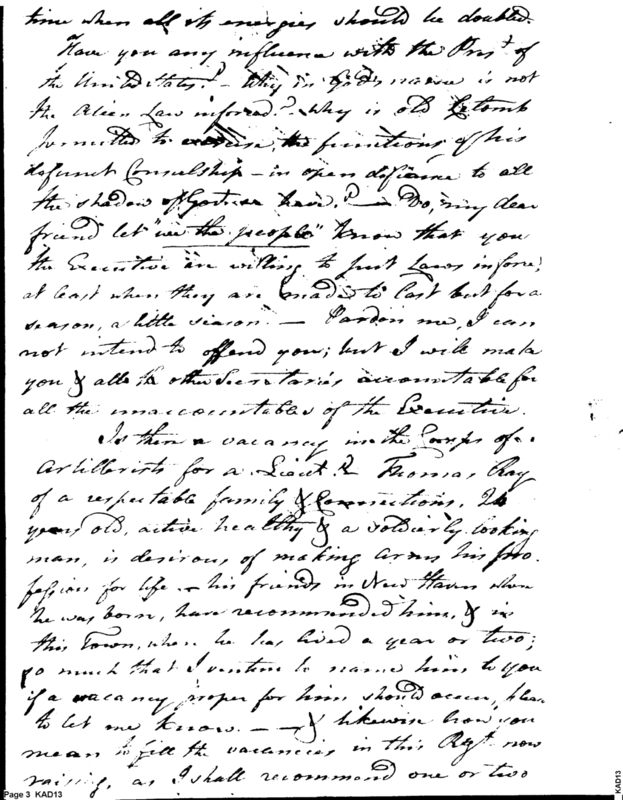 time when all its energies should be doubled.
Have you any influence with the Prest. of
the United States? – Why in God's name is not
the Alien Law inforced? – Why is old Letomb
permitted to exercise the functions of his
defunct Consulship – in open defiance to all
the shadow of Govt we have? – Do, my dear
friend let "we the people" know that you
the Executive are willing to put Laws in force,
at least when they are made to last but for a
season, a little season. – Pardon me, I can
not intend to offend you; but I will make
you & all the other Secretaries accountable for
all the unaccountables of the Executive.
Is there a vacancy in the Corps of
Artillerists for a Lieut.? Thomas Ray
of a respectable family & Connections,
years old, active healthy & a soldierly looking
man, is desirous of making arms his pro
fession for life – his friends in New Haven where
he was born, have recommended him, & in
this Town, where he has lived a year or two;
so much that I venture to name him to you
if a vacancy proper for him should occur, please
to let me know. – – & likewise how you
mean to fill the vacancies in this Regt. now
raising, as I shall recommend one or two
Page 3 KAD13
KAD13